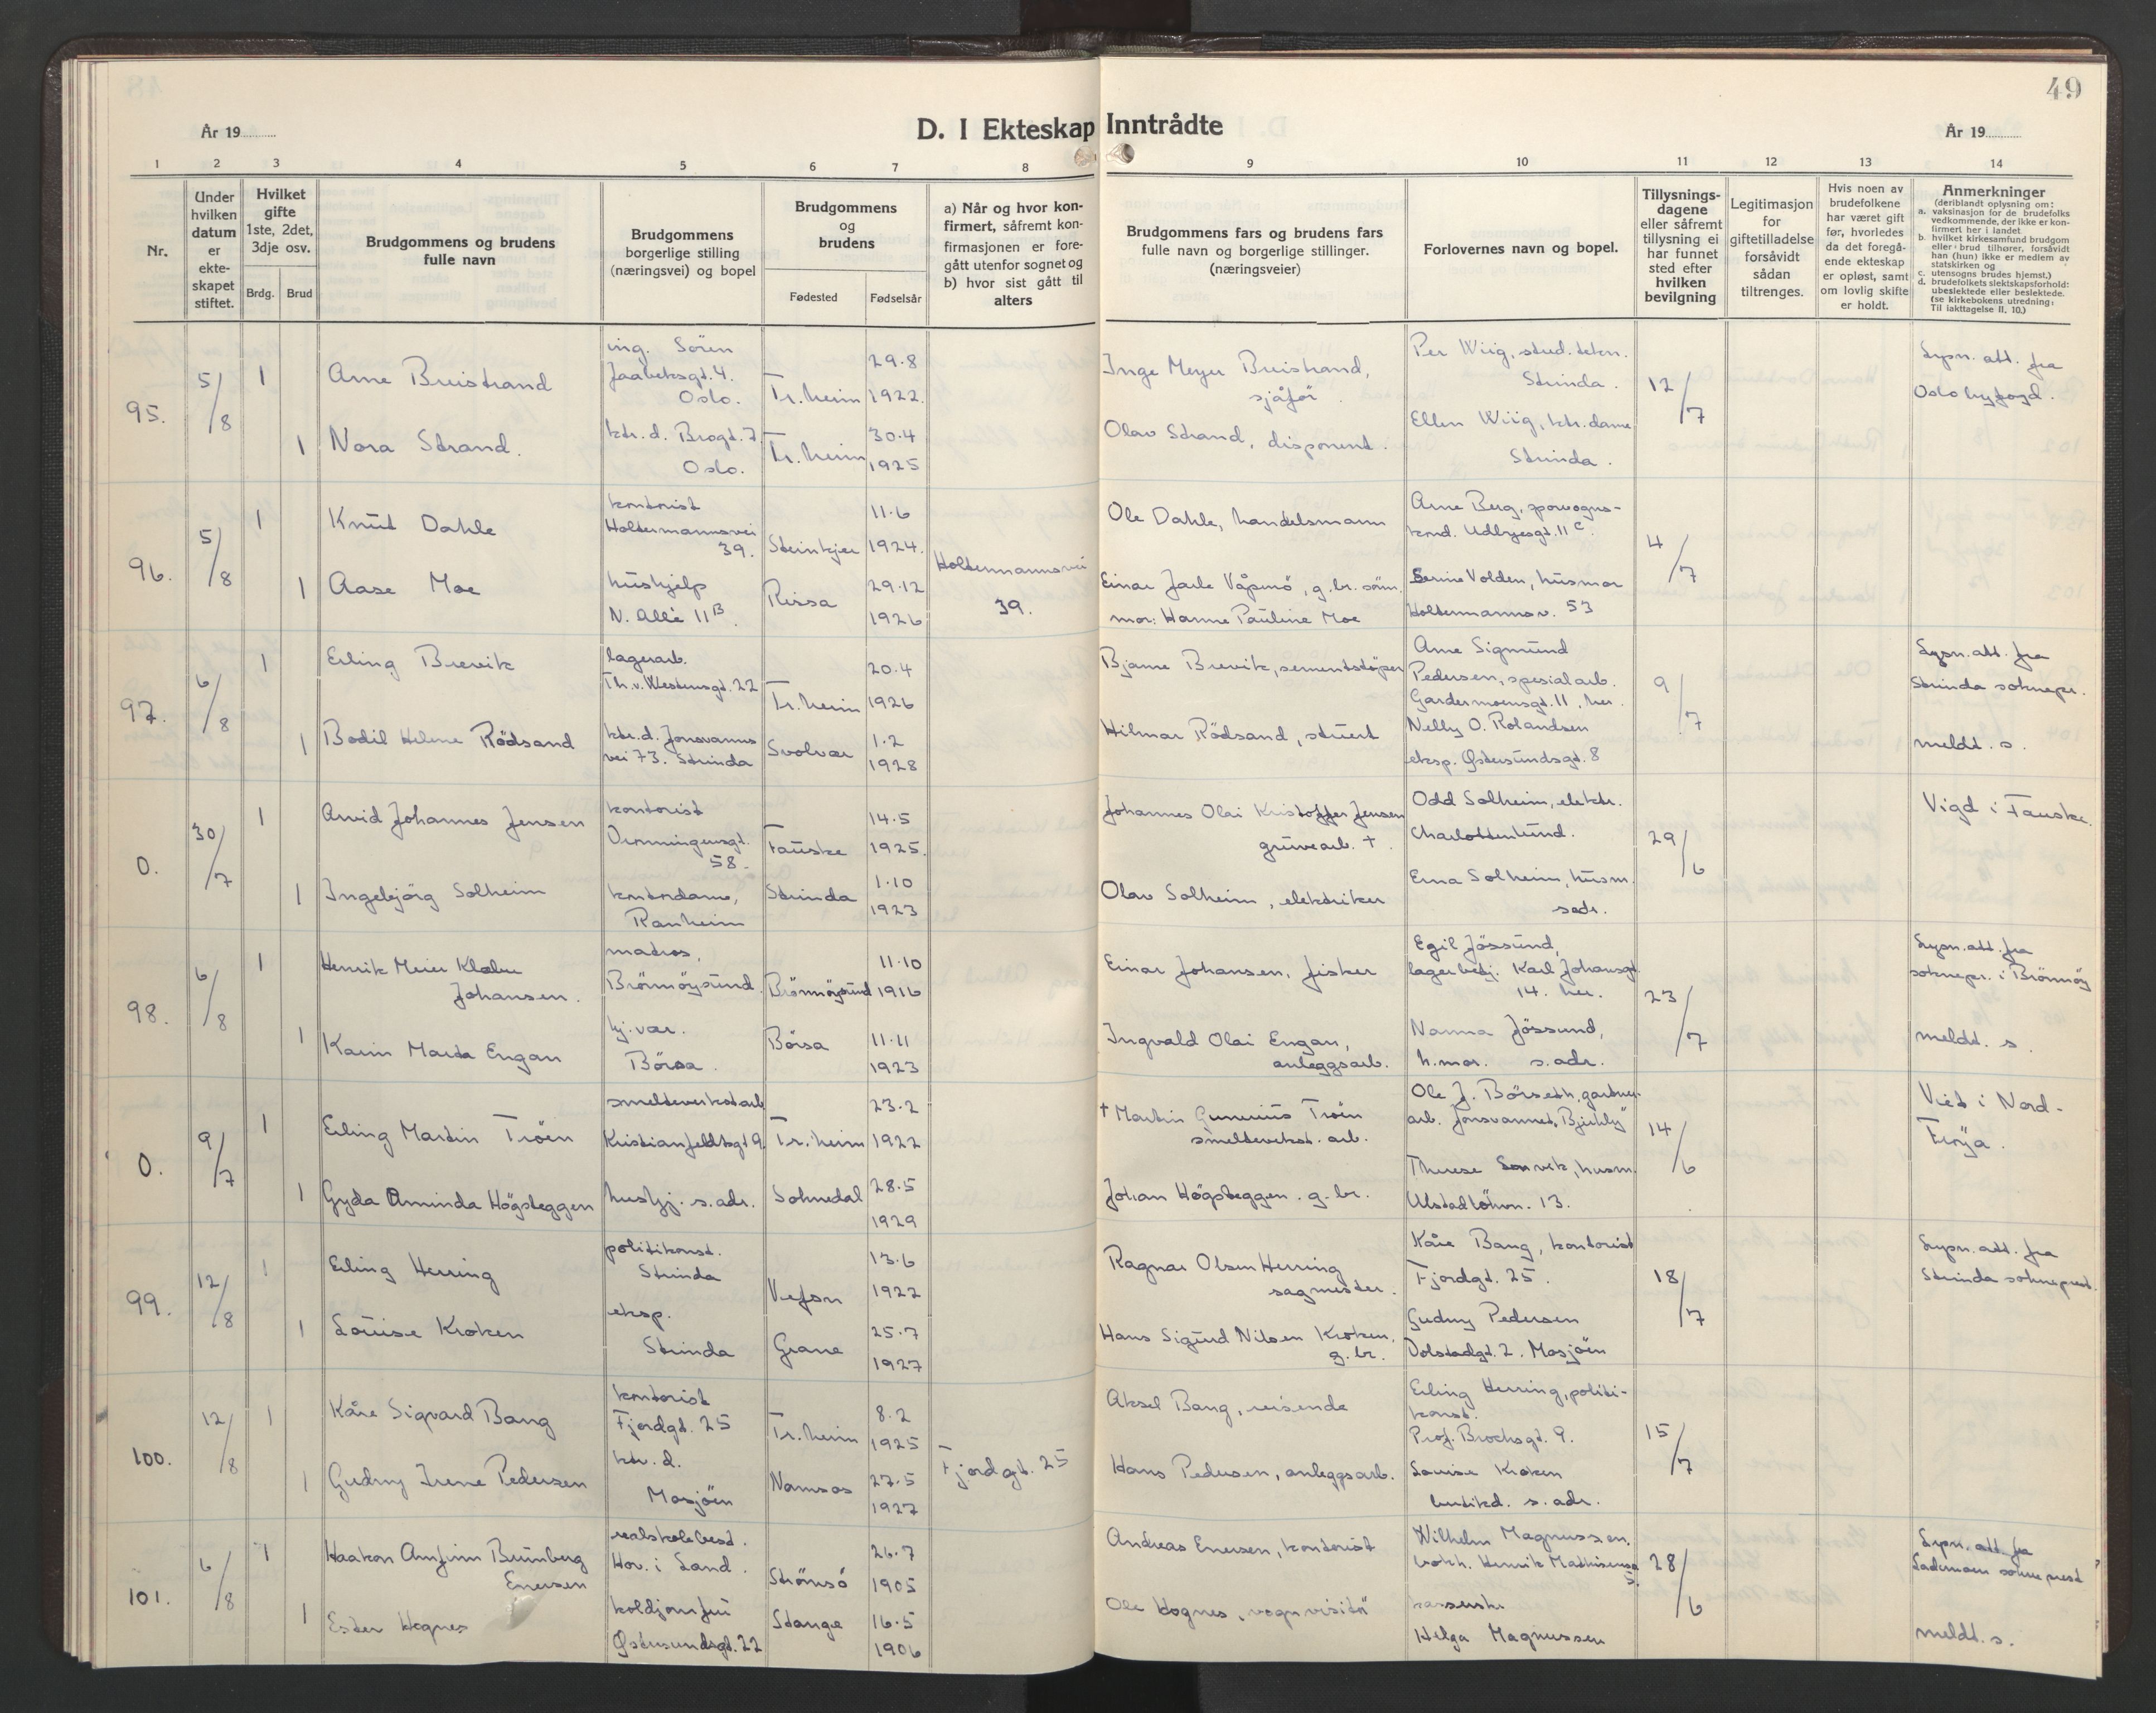 49
År 19
D. I Ekteskap Inntrådte
År 19
1 2 3 4 5 6 7 8 9 10 11 12 13 14
Nr.
Under hvilken datum er ekte-skapet stiftet.
Hvilket gifte 1ste, 2det, 3dje osv.
Brdg. Brud
Brudgommens og brudens fulle navn
Brudgommens borgerlige stilling (næringsvei) og bopel
Brudgommens og brudens
Fødested Fødselsår
a) Når og hvor kon-firmert, såfremt kon-firmasjonen er fore-gått utenfor sognet og
b) hvor sist gått til alters
Brudgommens fars og brudens fars fulle navn og borgerlige stillinger. (næringsveier)
Forlovernes navn og bopel.
Tillysnings-dagene eller såfremt tillysning ei har funnet sted efter hvilken bevilgning
Legitimasjon for giftetilladelse forsåvidt sådan tiltrenges.
Hvis noen av brudefolkene har været gift før, hvorledes da det foregå-ende ekteskap er opløst, samt om lovlig skifte er holdt.
Anmerkninger
(deriblandt oplysning om:
a. vaksinasjon for de brudefolks vedkommende, der ikke er kon-firmert her i landet
b. hvilket kirkesamfund brudgom eller brud tilhører, forsåvidt han (hun) ikke er medlem av statskirken og
c. utensogns brudes hjemst.)
d. brudefolkets slektskapsforhold: ubeslektede eller beslektede. (se kirkebokens utredning: Til iakttagelse II, 10.)
95. 5/8 1 Arne Breistrand
ing. Sören Jaabeksgt. 4. Oslo.
Tr.heim 29.8 1922.
Inge Meyer Breistrand, sjåfør.
Per Wiig, stud. tekn. Strinda.
12/7
Lysn. att. fra Oslo byfogd.
1 Nora Strand.
ktr.d. Brogt. 7 Oslo.
Tr.heim 30.4 1925
Olav Strand, disponent.
Ellen Wiig, ktr.dame Strinda.
96. 5/8 1 Knut Dahle
kontorist Holtermannsvei 39.
Steinkjer 11.6 1924.
Holtermannsvei 39.
Ole Dahle, handelsmann
Arne Berg, sporvogns-kond. Udbyesgt. 11 C.
4/7
1 Aase Moe
hushjelp N. Allé 11 B.
Rissa 29.12 1926
Einar Jarle Våpmö, g.br. sönn.
mor: Hanne Pauline Moe
Serine Volden, husmor Holtermannsv. 53
97. 6/8 1 Erling Brevik
lagerarb. Th.v. Westensgt. 22
Tr.heim 20.4 1926
Bjarne Brevik, sementstöper
Arne Sigmund Pedersen, spesialarb. Gardermoensgt. 11, her.
9/7
Lysn.att. fra Strinda soknepr.
1 Bodil Helene Rödsand
ktr.d. Jonsvanns vei 73. Strinda
Svolvær 1.2 1928
Hilmar Rödsand, stuert
Nelly O. Rolandsen eksp. Østersundsgt. 8
meldt. s.
0. 30/7 1 Arvid Johannes Jensen
kontorist Dronningensgt. 58.
Fauske 14.5 1925.
Johannes Olai Kristoffer Jensen gruvearb. †.
Odd Solheim, elektr. Charlottenlund.
29/6
Vigd i Fauske.
1 Ingebjörg Solheim
kontordame, Ranheim
Strinda 1.10 1923
Olav Solheim, elektriker
Erna Solheim, husm. sadr.
98. 6/8 1 Henrik Meier Klæbu Johansen.
matros, Brönnöysund.
Brönnöysund 11.10 1916
Einar Johansen, fisker
Egil Jössund, lagerbetj. Karl Johansgt. 14. her.
23/7
Lysn.att. fra soknepr. i Brönnöy
1 Karin Marta Engan
hj.vær. Börsa.
Börsa 11.11 1923
Ingvald Olai Engan, anleggsarb.
Nanna Jössund, h.mor. s.adr.
meldt. s.
0. 9/7 1 Erling Martin Tröen
smelteverkstarb Kristianfeldtsgt 9.
Tr.heim 23.2 1922
† Martin Gunerius Tröen smelteverkst. arb.
Ole J. Börseth, gartner-arb. Jonsvannet, "Bjerkly"
14/6
Viet i Nord-Fröya.
1 Gyda Aminda Högsteggen
hushj. s.adr.
Soknedal 28.5 1929
Johan Högsteggen. g.br.
Therese Sorvik, husm. Ulstadlökvn. 13.
99. 12/8 1 Erling Herring
politikonst. Strinda
Vefsn 13.6 1922
Ragnar Olsen Herring sagmester.
Kåre Bang, kontorist Fjordgt. 25.
18/7
Lysn. att. fra Strinda sokneprest.
1 Louise Kroken
eksp. Strinda
Grane 25.7 1927
Hans Sigurd Nilsen Kroken, g.br.
Gudny Pedersen Dolstadgt. 2. Mosjöen
100. 12/8 1 Kåre Sigvard Bang
kontorist Fjordgt. 25
Tr.heim 8.2 1925
Fjordgt. 25
Aksel Bang, reisende
Erling Herring, politi-konst. Prof. Brochsgt. 9.
15/7
1 Gudny Irene Pedersen
ktr.d. Mosjöen
Namsos 27.5 1927
Hans Pedersen, anleggsarb.
Louise Kroken butikd. s.adr.
101. 6/8 1 Haakon Arnfinn Brunberg Enersen
realskolebest. Hov. i Land.
Strömsö 26.7 1905
Andreas Enersen, kontorist
Wilhelm Magnussen, Henrik Mathisensg 5.
28/6
Lysn. att. fra Lademoen sokneprest
1 Ester Hognes
koldjomfru Østersundsgt. 22
Stange 16.5 1906
Ole Hognes, vognvisitör
Helga Magnussen
meldt. s.